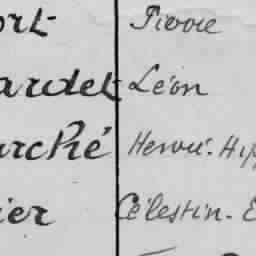 ort Pierre
ardet Léon
arché Henri-Hip
ier Célestin-E